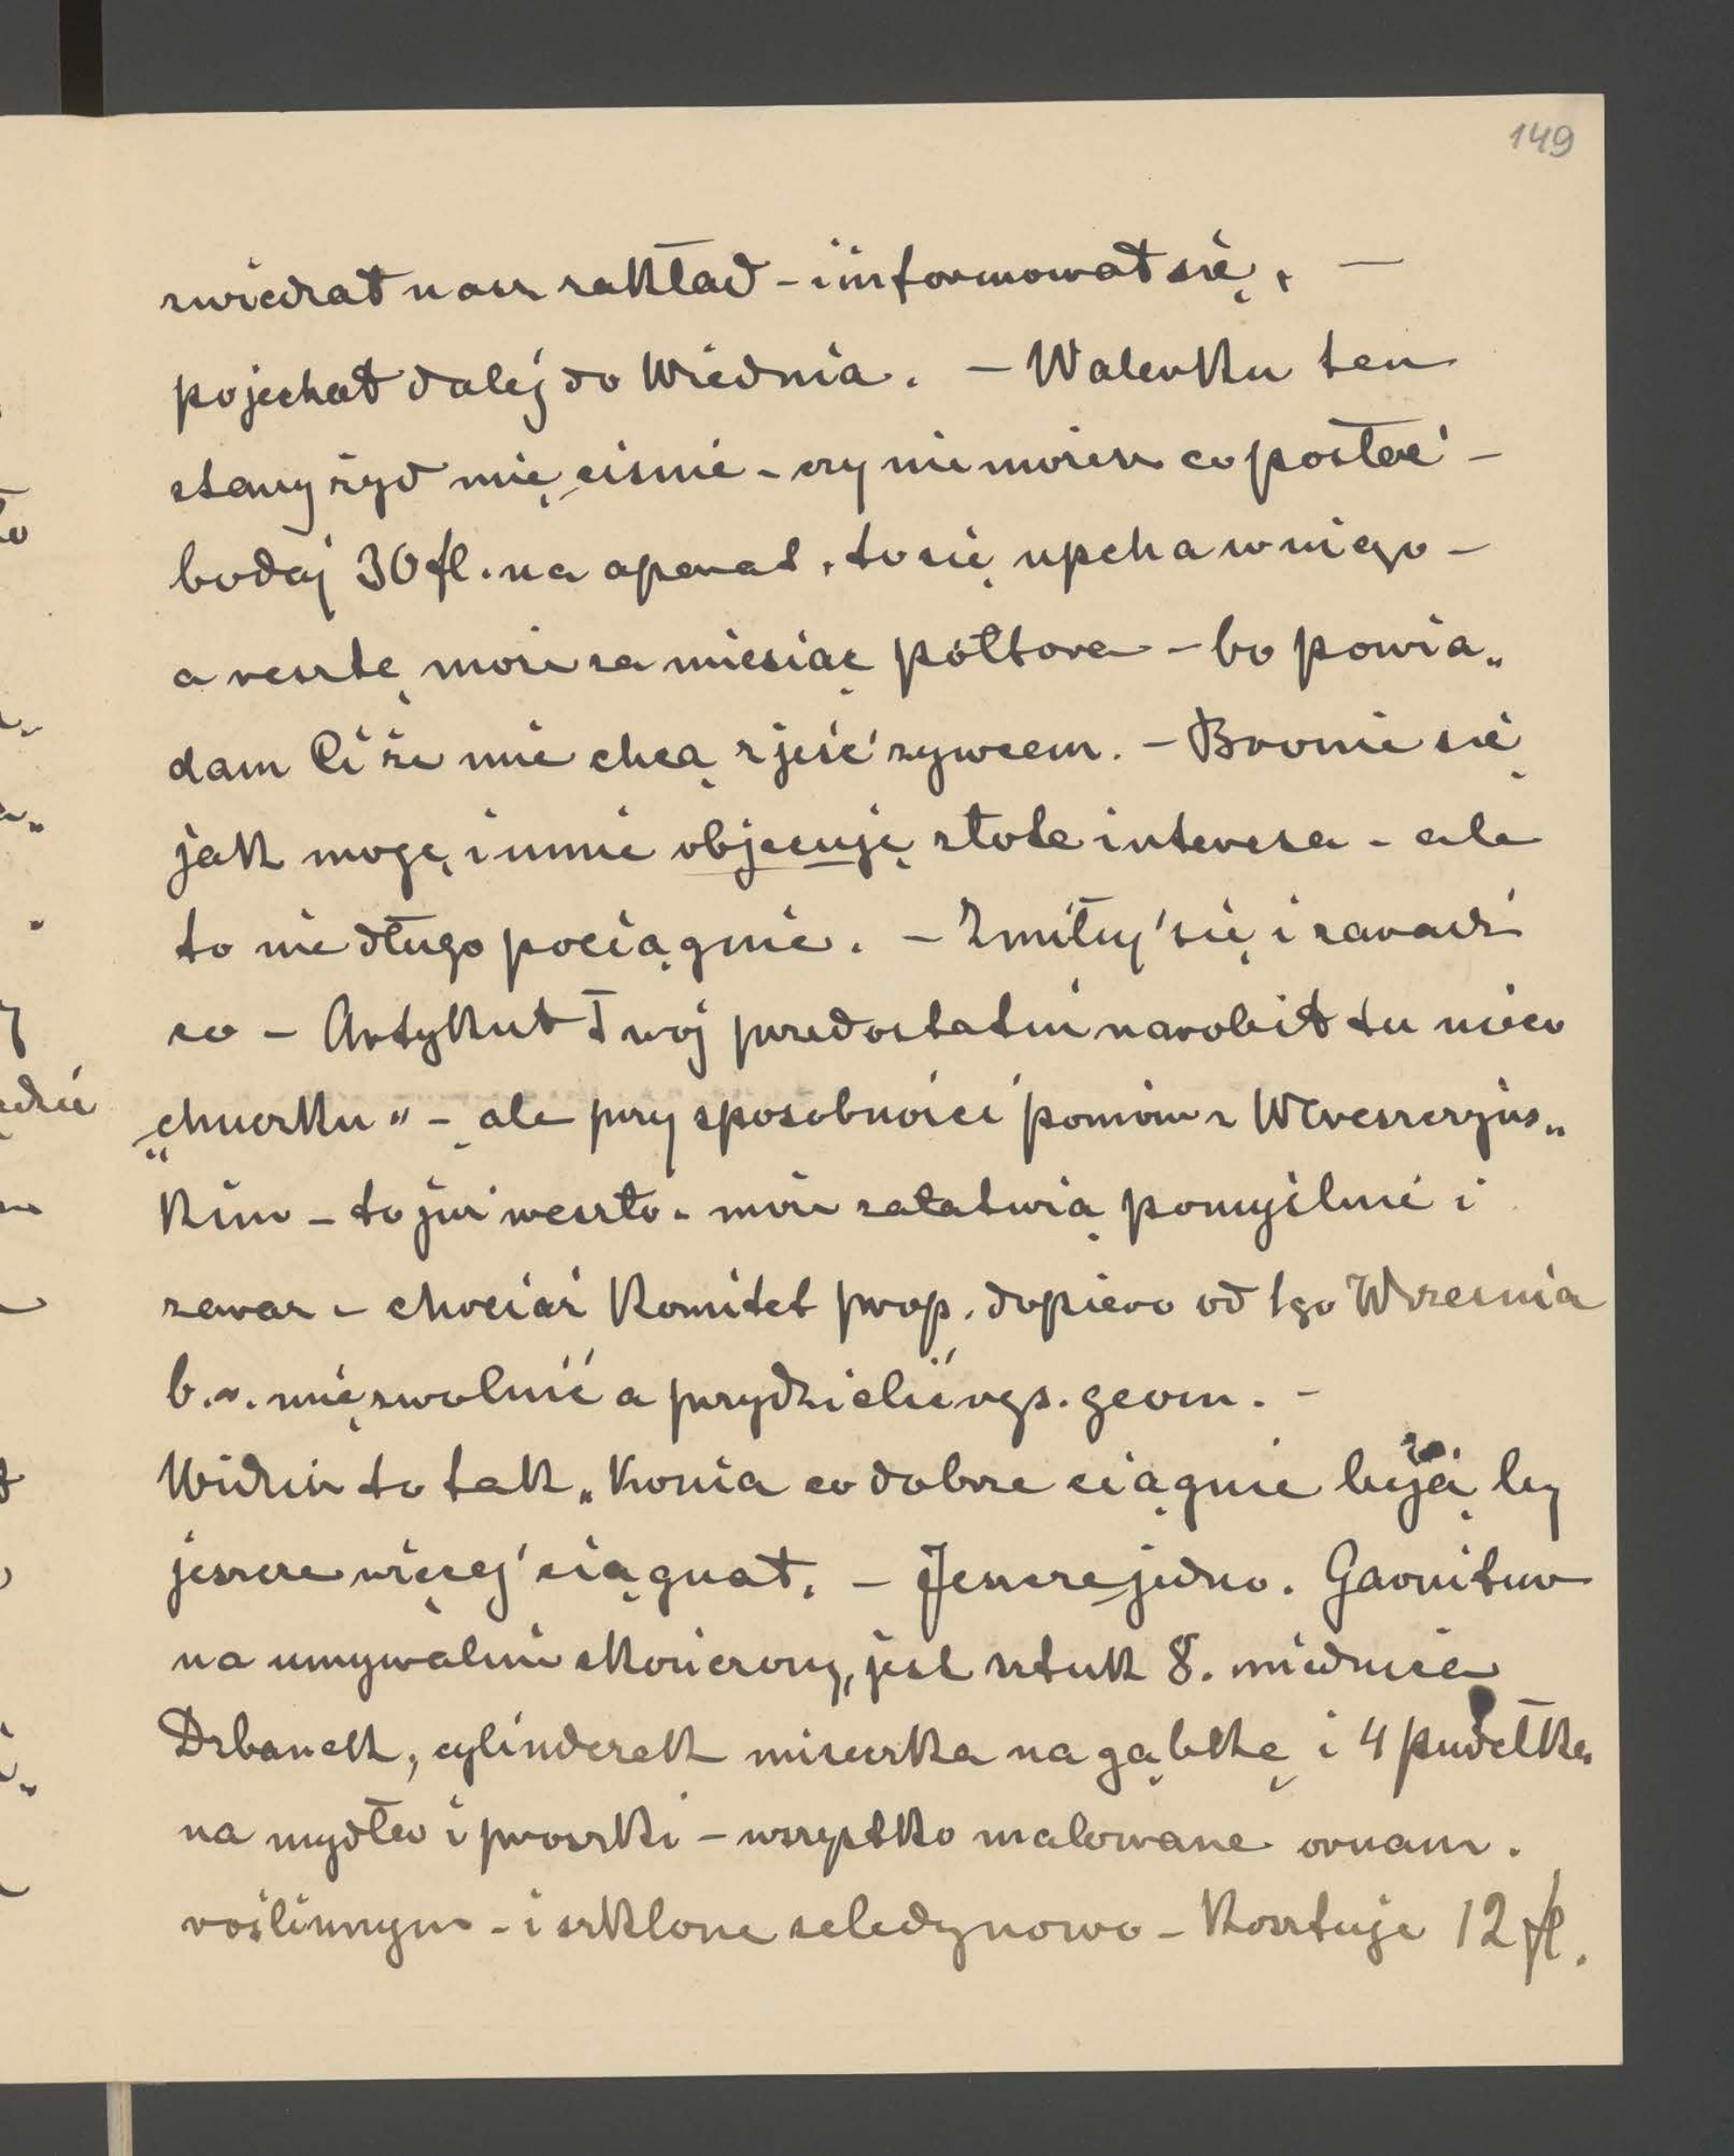 149
zwiedzał nasz zakład - i informował się, -
pojechał dalej do Wiednia. - Walerku ten
stary żyd mię ciśnie - czy nie możesz co posłać -
bodaj 30 fl. na aparat, to się upcha w niego -
a resztę może za miesiąc półtora - bo powia„
dam Ci że mie chcą zjeść żywcem. - Bronie się
jak mogę, i umie objecuję złote interesa - ale
to nie długo pociągnie. - Zmiłuj się i zaradź
co - Artykuł Twój przedostatni narobił tu nieco
„chuczku" - ale przy sposobności pomów z Wereszczyńs„
kim - to już weszło - może załatwią pomyślnie i
zaraz - chociaż Komitet prop. dopiero od 1go Wrzesnia
b.r. mię zwolnić a przydzielić egs. geom. -
Widzisz to tak „Konia co dobrze ciągnie biją by
jeszcze więcej ciągnął. - Jeszcze jedno. Garnitur
na umywalnie skończony, jest sztuk 8. miednica
Dzbanek, cylinderek miseczka na gąbkę i 4 pudełka
na mydło i proszki - wszystko malowane ornam.
roślinnym - i szklone seledynowo - Kosztuje 12 fl.